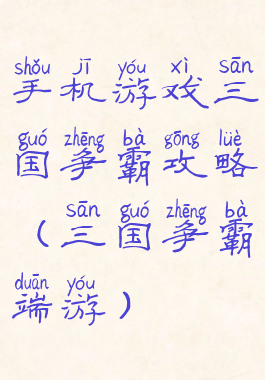 shǒu jī yóu xì sān
手机游戏三
guó zhēng bà gōng lüè
国争霸攻略
sān guó zhēng bà
(三国争霸
duān yóu
端游)